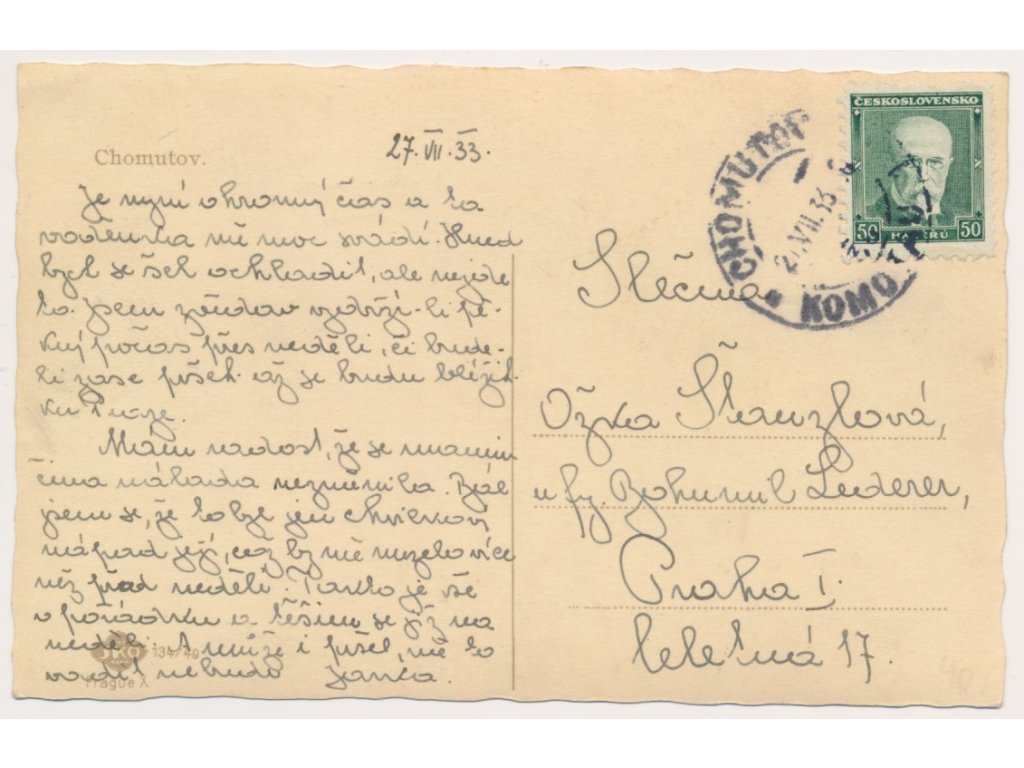 Chomutov.
27. VII. 33.
Je nyní ohromný čas a ta
vodenka mě moc svádí. Hned
bych se šel ochladit, ale nejde
to. Jsem zvědav vydrží-li pě-
kný počas přes neděli, či bude-
li zase pršet až se budu blížit
ku Praze.
Mám radost, že se mamin
čina nálada nezměnila. Bál
jsem se, že to byl jen chvilkový
nápad její, což by mě mrzelo více
než před nedělí. Takto je vše
v pořádku a těším se již na
neděli. A může i pršet, mě to
vadit nebude Janča.
JKO 134/49
Prague X
ČESKOSLOVENSKO
50 HALÉŘŮ 50
CHOMUTOV
27.VII.33
KOMOTAU
Slečna
Ožka Stanzlová,
u fy. Bohumil Lederer,
Praha I.
Celetná 17.
401